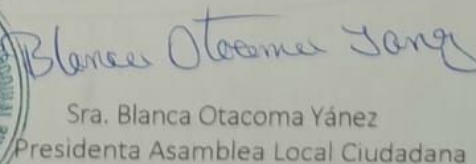 Blanca Otacoma Yanez
Sra. Blanca Otacoma Yánez
Presidenta Asamblea Local Ciudadana